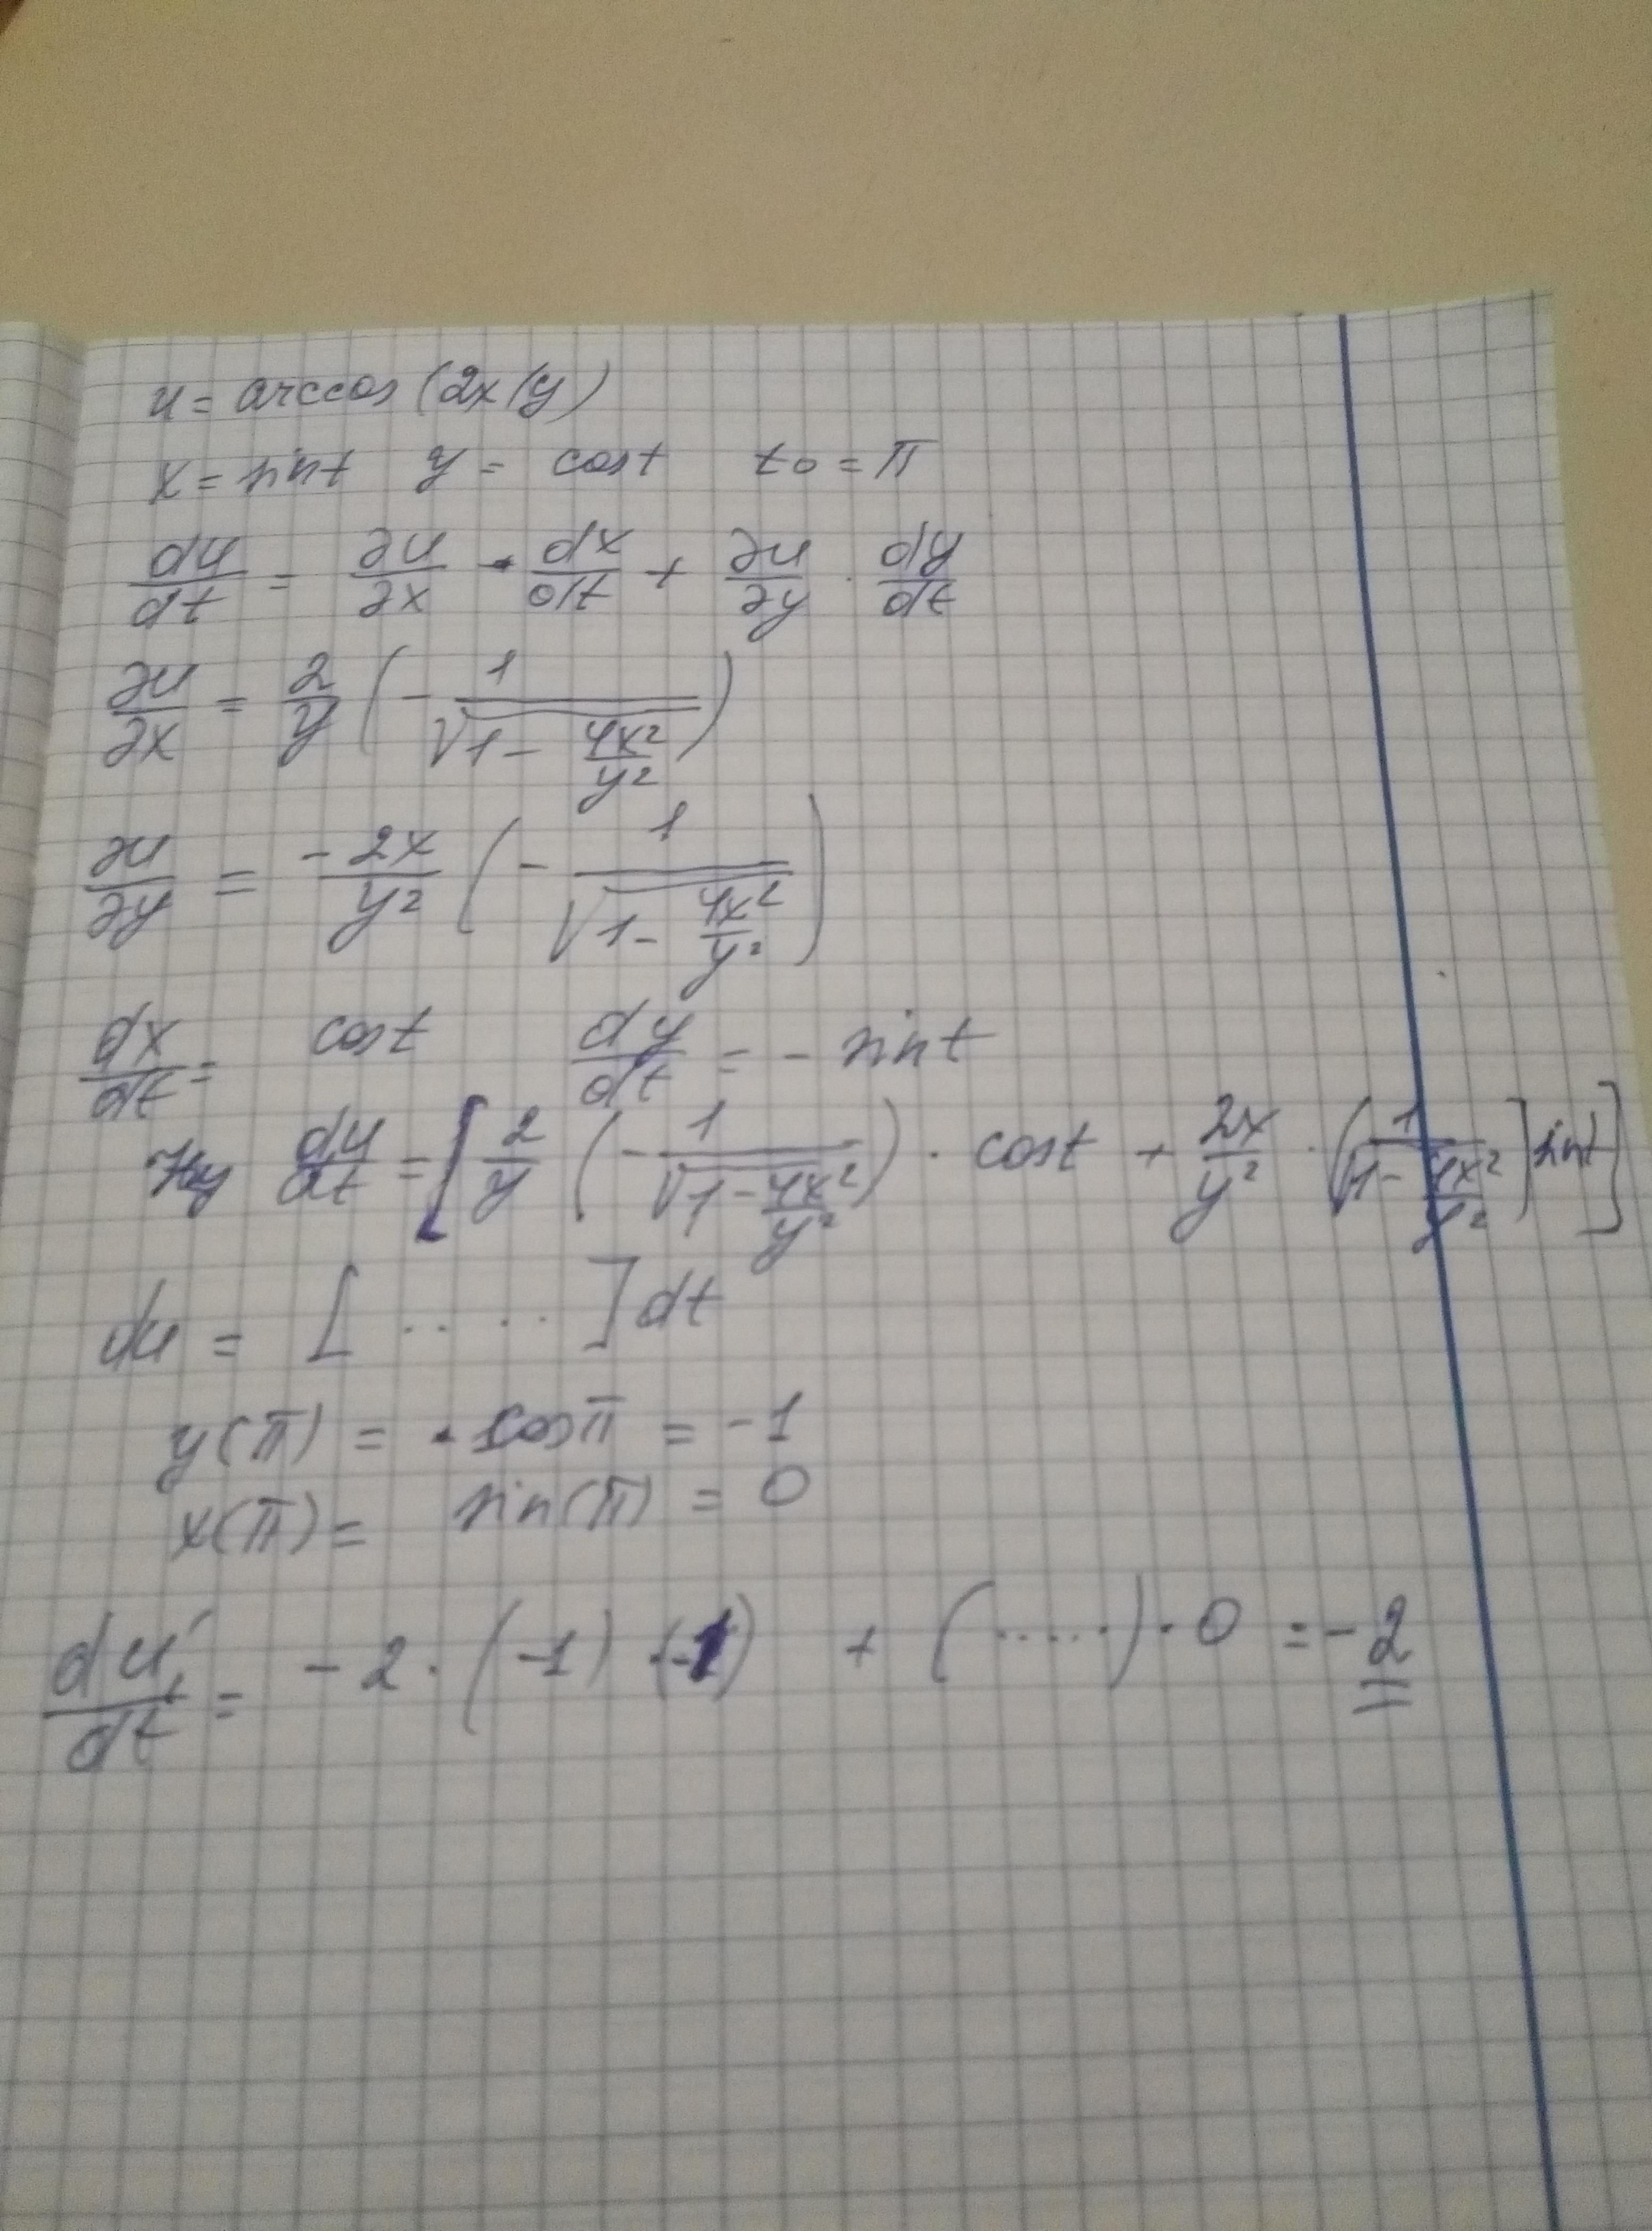 u = arccos (2x/y)
x = sint y = cost t0 = π
du/dt = ∂u/∂x · dx/dt + ∂u/∂y · dy/dt
∂u/∂x = 2/y (- 1/√(1 - 4x²/y²))
∂u/∂y = -2x/y² (- 1/√(1 - 4x²/y²))
dx/dt = cost dy/dt = - sint
du/dt = [2/y (- 1/√(1 - 4x²/y²)) · cost + 2x/y² · (1/√(1 - 4x²/y²)] sint]
du = [.....] dt
y(π) = cosπ = -1
x(π) = sin(π) = 0
du/dt = -2 · (-1) · (-1) + (.....) · 0 = -2